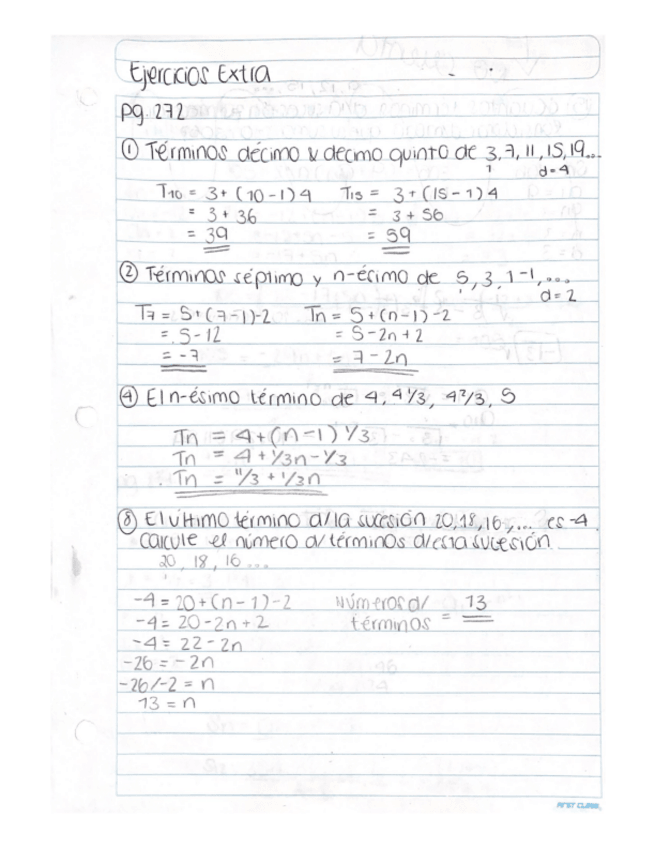 Ejercicios Extra
pg. 272
① Términos décimo y decimo quinto de 3, 7, 11, 15, 19...
d=4
T10 = 3+(10-1)4 T15 = 3+(15-1)4
= 3+36 = 3+56
= 39 = 59
② Términos séptimo y n-écimo de 5, 3, 1-1, ...
d=2
T7 = 5+(7-1)-2 Tn = 5+(n-1)-2
= 5-12 = 5-2n+2
= -7 = 7-2n
④ El n-ésimo término de 4, 4 1/3, 4 2/3, 5
Tn = 4+(n-1) 1/3
Tn = 4+1/3n-1/3
Tn = 11/3+1/3n
⑧ El último término d/la sucesión 20, 18, 16, ... es -4.
calcule el número d/términos d/esta sucesión
20, 18, 16...
-4=20+(n-1)-2 Números d/ 13
-4=20-2n+2 términos =
-4=22-2n
-26=-2n
-26/-2=n
13=n
FIRST CLASS